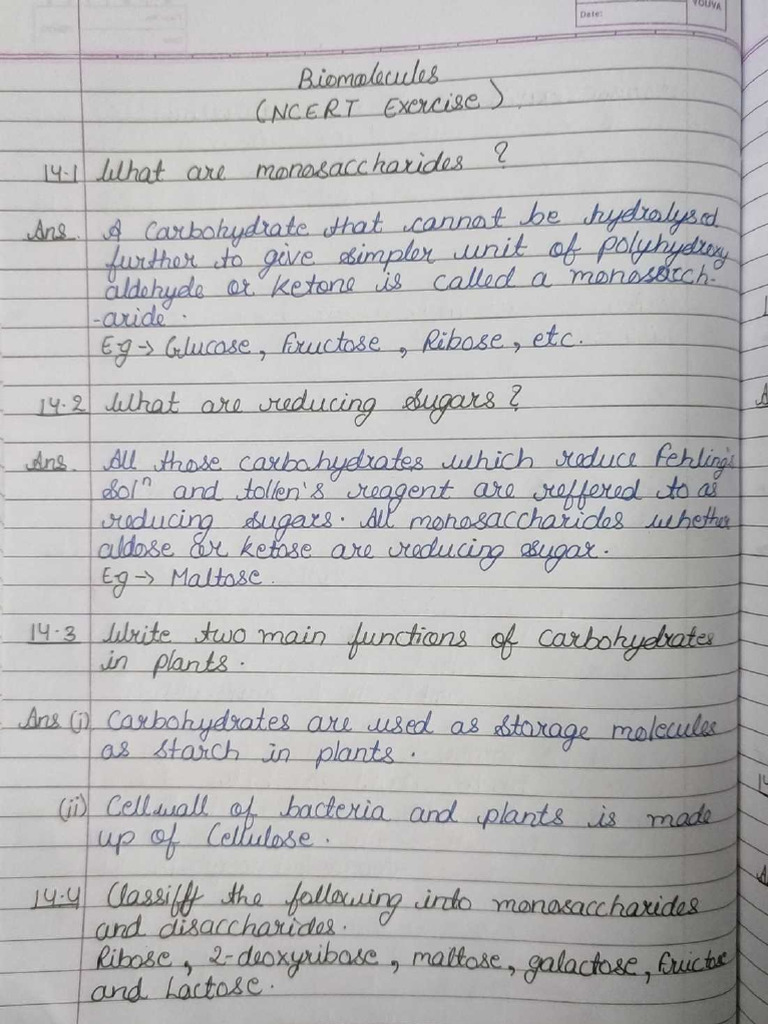 YOUVA
Date:
Biomolecules
(NCERT Exercise)
14.1 What are monosaccharides ?
Ans. A carbohydrate that cannot be hydrolysed
further to give simpler unit of polyhydroxy
aldehyde or ketone is called a monosacch-
-aride.
Eg → Glucose, fructose, Ribose, etc.
14.2 What are reducing sugars?
Ans. All those carbohydrates which reduce fehling's
solⁿ and tollen's reagent are reffered to as
reducing sugars. All monosaccharides whether
aldose or ketose are reducing sugar.
Eg → Maltose.
14.3 Write two main functions of carbohydrates
in plants.
Ans (i) Carbohydrates are used as storage molecules
as starch in plants.
(ii) Cellwall of bacteria and plants is made
up of Cellulose.
14.4 Classiff the following into monosaccharides
and disaccharides.
Ribose, 2-deoxyribose, maltose, galactose, fructose
and Lactose.